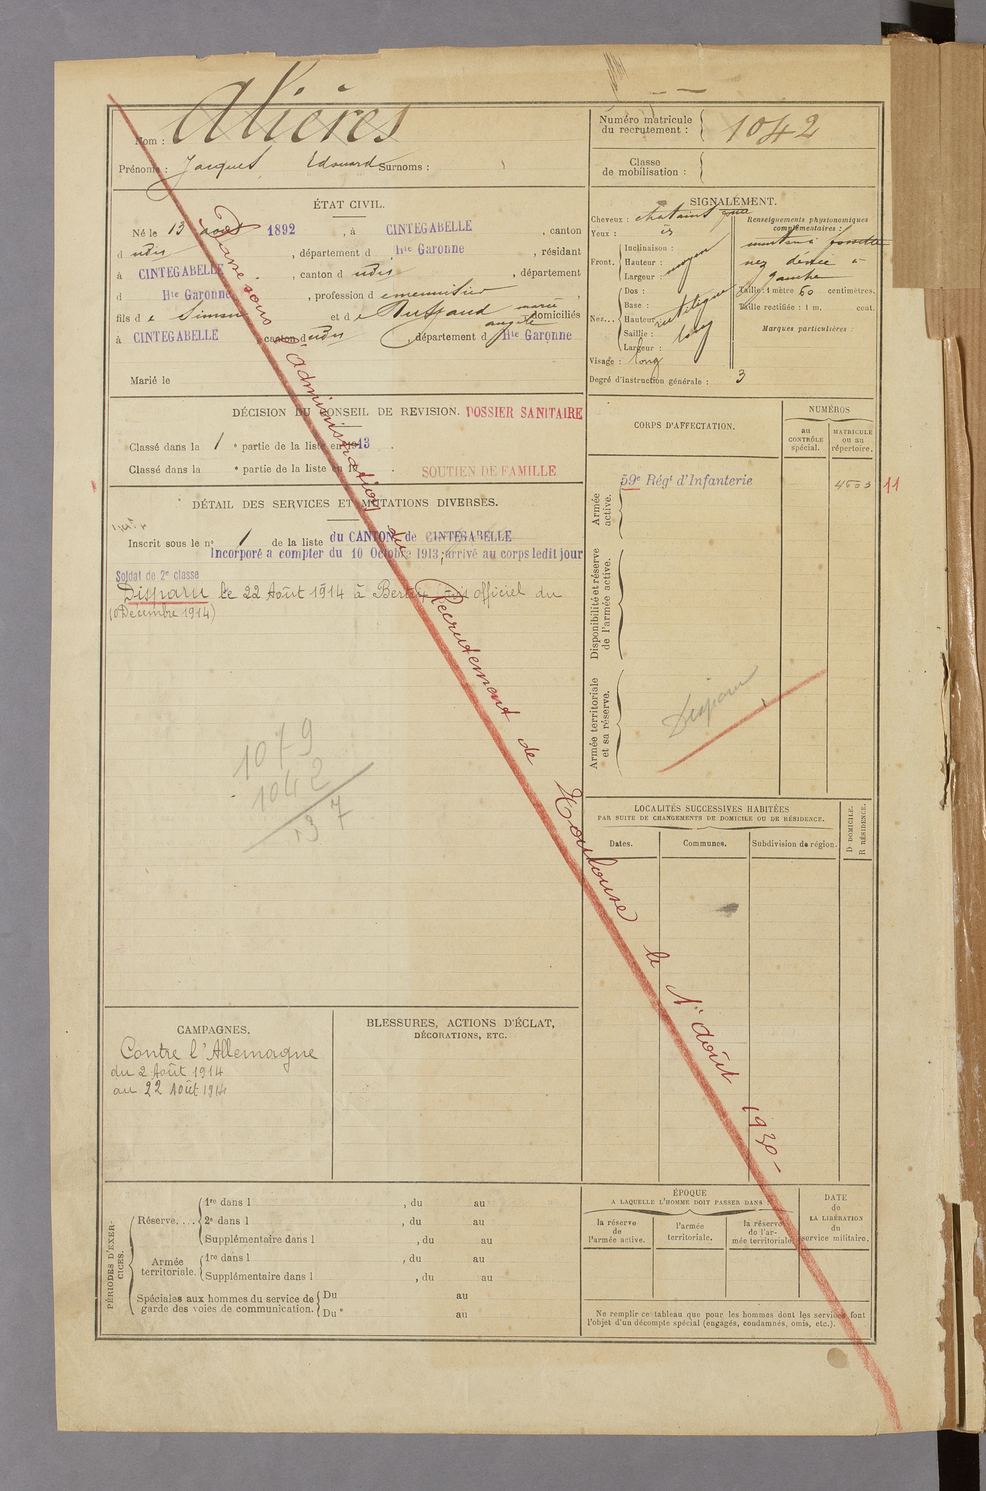 Nom : Alières
Prénoms : Jacques Edouard Surnoms :
Numéro matricule du recrutement : 1042
Classe de mobilisation :
ÉTAT CIVIL.
Né le 13 août 1892, à CINTEGABELLE, canton
d udis, département d Hte Garonne, résidant
à CINTEGABELLE, canton d udis, département
d Hte Garonne, profession d e menuisier,
fils d e Simon et d e Ruffaud marie angèle domiciliés
à CINTEGABELLE, canton d udis, département d Hte Garonne
Marié le
SIGNALÉMENT.
Cheveux : chatains
Yeux :
Front. Inclinaison :
Hauteur : moyen
Largeur :
Nez... Dos : rectiligne
Base :
Hauteur :
Saillie : long
Largeur :
Visage : long
Degré d'instruction générale : 3
Renseignements physionomiques complémentaires :
menton à fossette
nez dévié à
gauche
Taille : 1 mètre 60 centimètres.
Taille rectifiée : 1 m. cent.
Marques particulières :
DÉCISION DU CONSEIL DE REVISION. DOSSIER SANITAIRE
Classé dans la 1e partie de la liste en 1913.
Classé dans la e partie de la liste en
SOUTIEN DE FAMILLE
DÉTAIL DES SERVICES ET MUTATIONS DIVERSES.
Inscrit sous le no 1 de la liste du CANTON de CINTEGABELLE
Incorporé a compter du 10 Octobre 1913; arrivé au corps ledit jour
Soldat de 2e classe
Disparu le 22 Août 1914 à Bertrix avis officiel du
10 Décembre 1914)
1079
1042
37
CORPS D'AFFECTATION.
NUMÉROS
au CONTRÔLE spécial.
MATRICULE ou au répertoire.
Armée active.
59e Régt d'Infanterie
4503
11
Disponibilité et réserve de l'armée active.
Armée territoriale et sa réserve.
Disparu
LOCALITÉS SUCCESSIVES HABITÉES
PAR SUITE DE CHANGEMENTS DE DOMICILE OU DE RÉSIDENCE.
Dates.
Communes.
Subdivision de région.
D DOMICILE.
R RÉSIDENCE.
Passé sous l'administration du Recrutement de Toulouse le 1er août 1930
CAMPAGNES.
Contre l'Allemagne
du 2 Août 1914
au 22 Août 1914
BLESSURES, ACTIONS D'ÉCLAT,
DÉCORATIONS, ETC.
PÉRIODES D'EXERCICES.
Réserve....
1re dans l , du au
2e dans l , du au
Supplémentaire dans l , du au
Armée territoriale.
1re dans l , du au
Supplémentaire dans l , du au
Spéciales aux hommes du service de garde des voies de communication.
Du au
Du au
ÉPOQUE
A LAQUELLE L'HOMME DOIT PASSER DANS :
la réserve de l'armée active.
l'armée territoriale.
la réserve de l'armée territoriale.
DATE
de
LA LIBÉRATION
du
service militaire.
Ne remplir ce tableau que pour les hommes dont les services font
l'objet d'un décompte spécial (engagés, condamnés, omis, etc.).